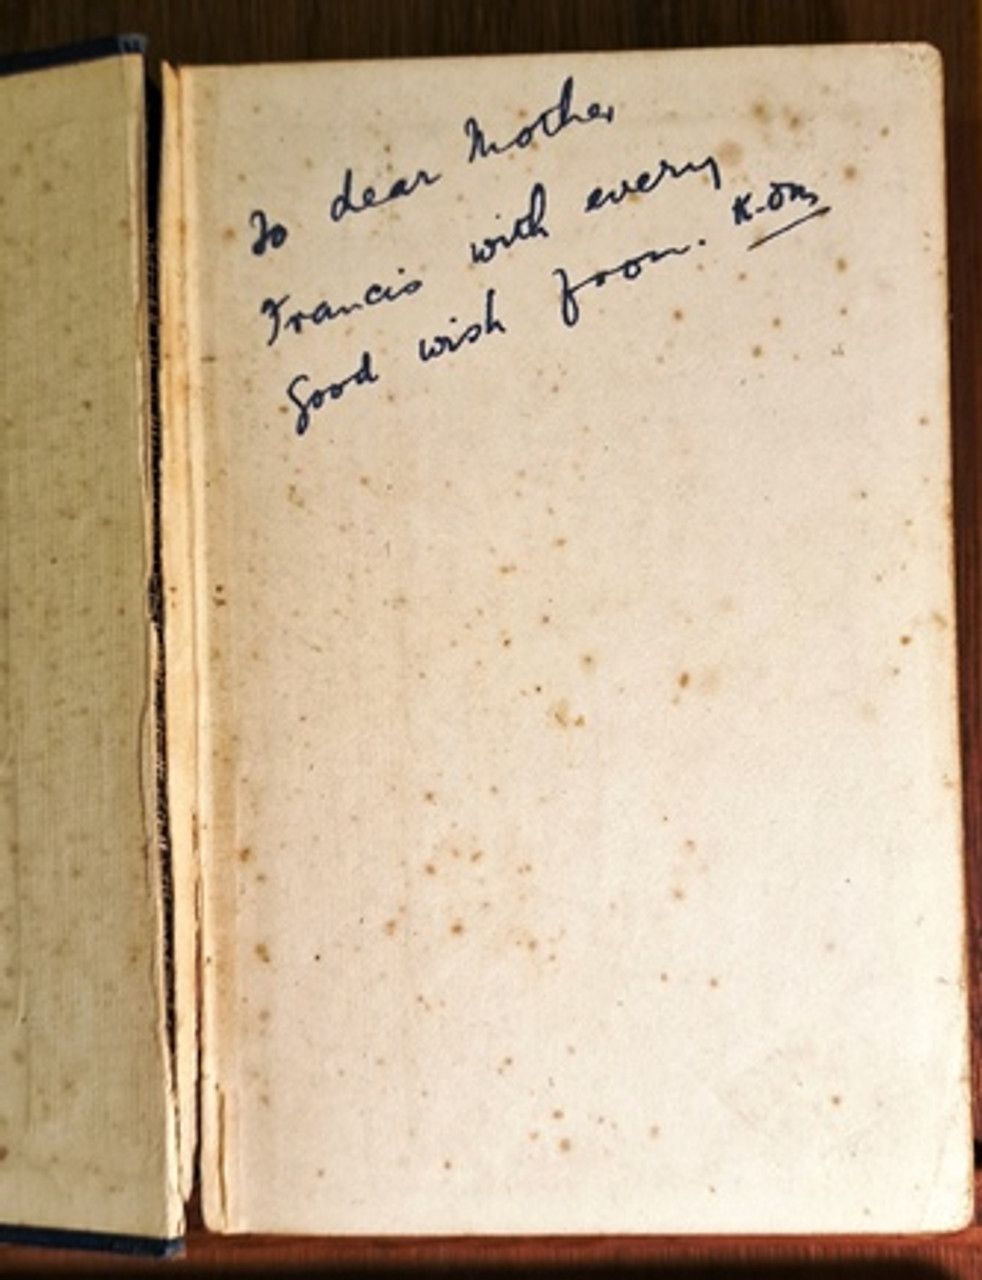 To dear Mother
Francis with every
Good wish from.